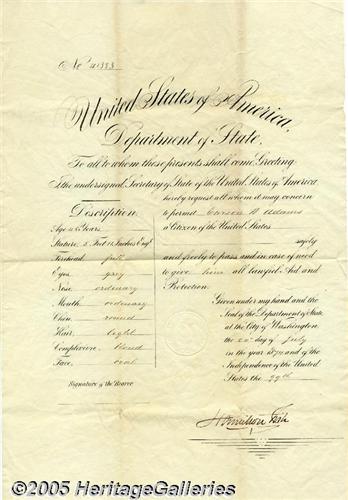 No
United States of America,
Department of State,
To all to whom these presents shall come Greeting
I, the undersigned, Secretary of State of the United States of America
hereby request all whom it may concern
to permit Adams
a Citizen of the United States
safely
and freely to pass and in case of need
to give him all lawful Aid and
Protection.
Given under my hand and the
Seal of the Department of State
at the City of Washington
the day of July
in the year 1874 and of the
Independence of the United
States the 99th
Hamilton Fish
Description
Age Years
Stature 5 Feet Inches Eng.
Forehead full
Eyes grey
Nose ordinary
Mouth ordinary
Chin round
Hair light
Complexion Blond
Face oval
Signature of the Bearer
©2005 HeritageGalleries